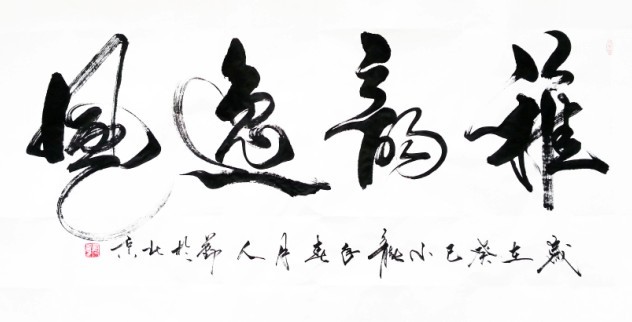 雅韵逸風
歲在癸巳小龍年春月人於北京